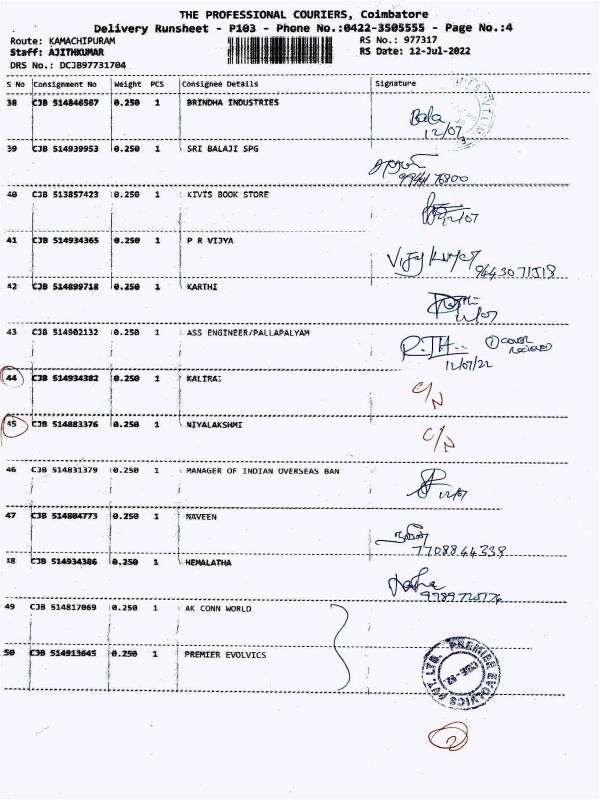 THE PROFESSIONAL COURIERS, Coimbatore
Delivery Runsheet - P103 - Phone No.:0422-3505555 - Page No.:4
Route: KAMACHIPURAM RS No.: 977317
Staff: AJITHKUMAR RS Date: 12-Jul-2022
DRS No.: DCJB97731704
S No Consignment No Weight PCS Consignee Details Signature
38 CJB 514846567 0.250 1 BRINDHA INDUSTRIES
Bala
12/07
39 CJB 514939953 0.250 1 SRI BALAJI SPG
40 CJB 513857423 0.250 1 KIVIS BOOK STORE
12/07
41 CJB 514934365 0.250 1 P R VIJYA
Vijaykumar
42 CJB 514899718 0.250 1 KARTHI
12/07
43 CJB 514902132 0.250 1 ASS ENGINEER/PALLAPALYAM
① COVER
RECIEVED
12/07/22
44 CJB 514934382 0.250 1 KALIRAJ
C/N
45 CJB 514883376 0.250 1 NIYALAKSHMI
C/N
46 CJB 514831379 0.250 1 MANAGER OF INDIAN OVERSEAS BAN
12/07
47 CJB 514804773 0.250 1 NAVEEN
நவீன்
7708844339
48 CJB 514934386 0.250 1 HEMALATHA
49 CJB 514817069 0.250 1 AK CONN WORLD
50 CJB 514913645 0.250 1 PREMIER EVOLVICS
PREMIER EVOLVICS PVT. LTD.
CBE-62
2